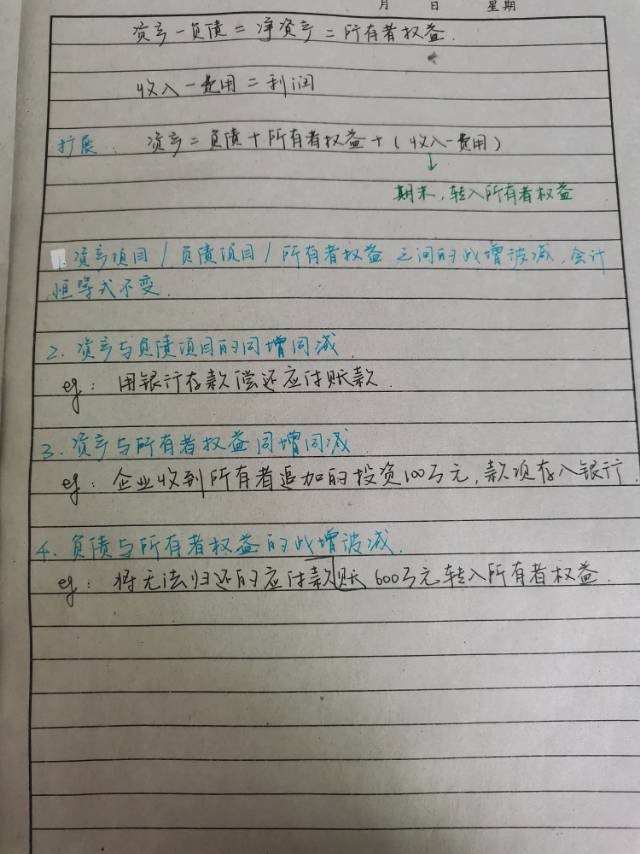 月 日 星期
资产-负债=净资产=所有者权益.
收入-费用=利润
扩展: 资产=负债+所有者权益+(收入-费用)
↓
期末,转入所有者权益
1. 资产项目/负债项目/所有者权益之间的此增彼减,会计
恒等式不变.
2. 资产与负债项目的同增同减.
eg: 用银行存款偿还应付账款.
3. 资产与所有者权益同增同减.
eg: 企业收到所有者追加的投资100万元,款项存入银行.
4. 负债与所有者权益的此增彼减.
eg: 将无法归还的应付款账600万元转入所有者权益.